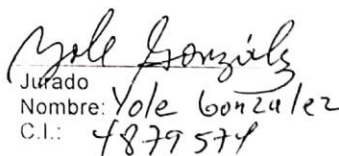 Yole González
Jurado
Nombre: Yole Gonzalez
C.I.: 4879574